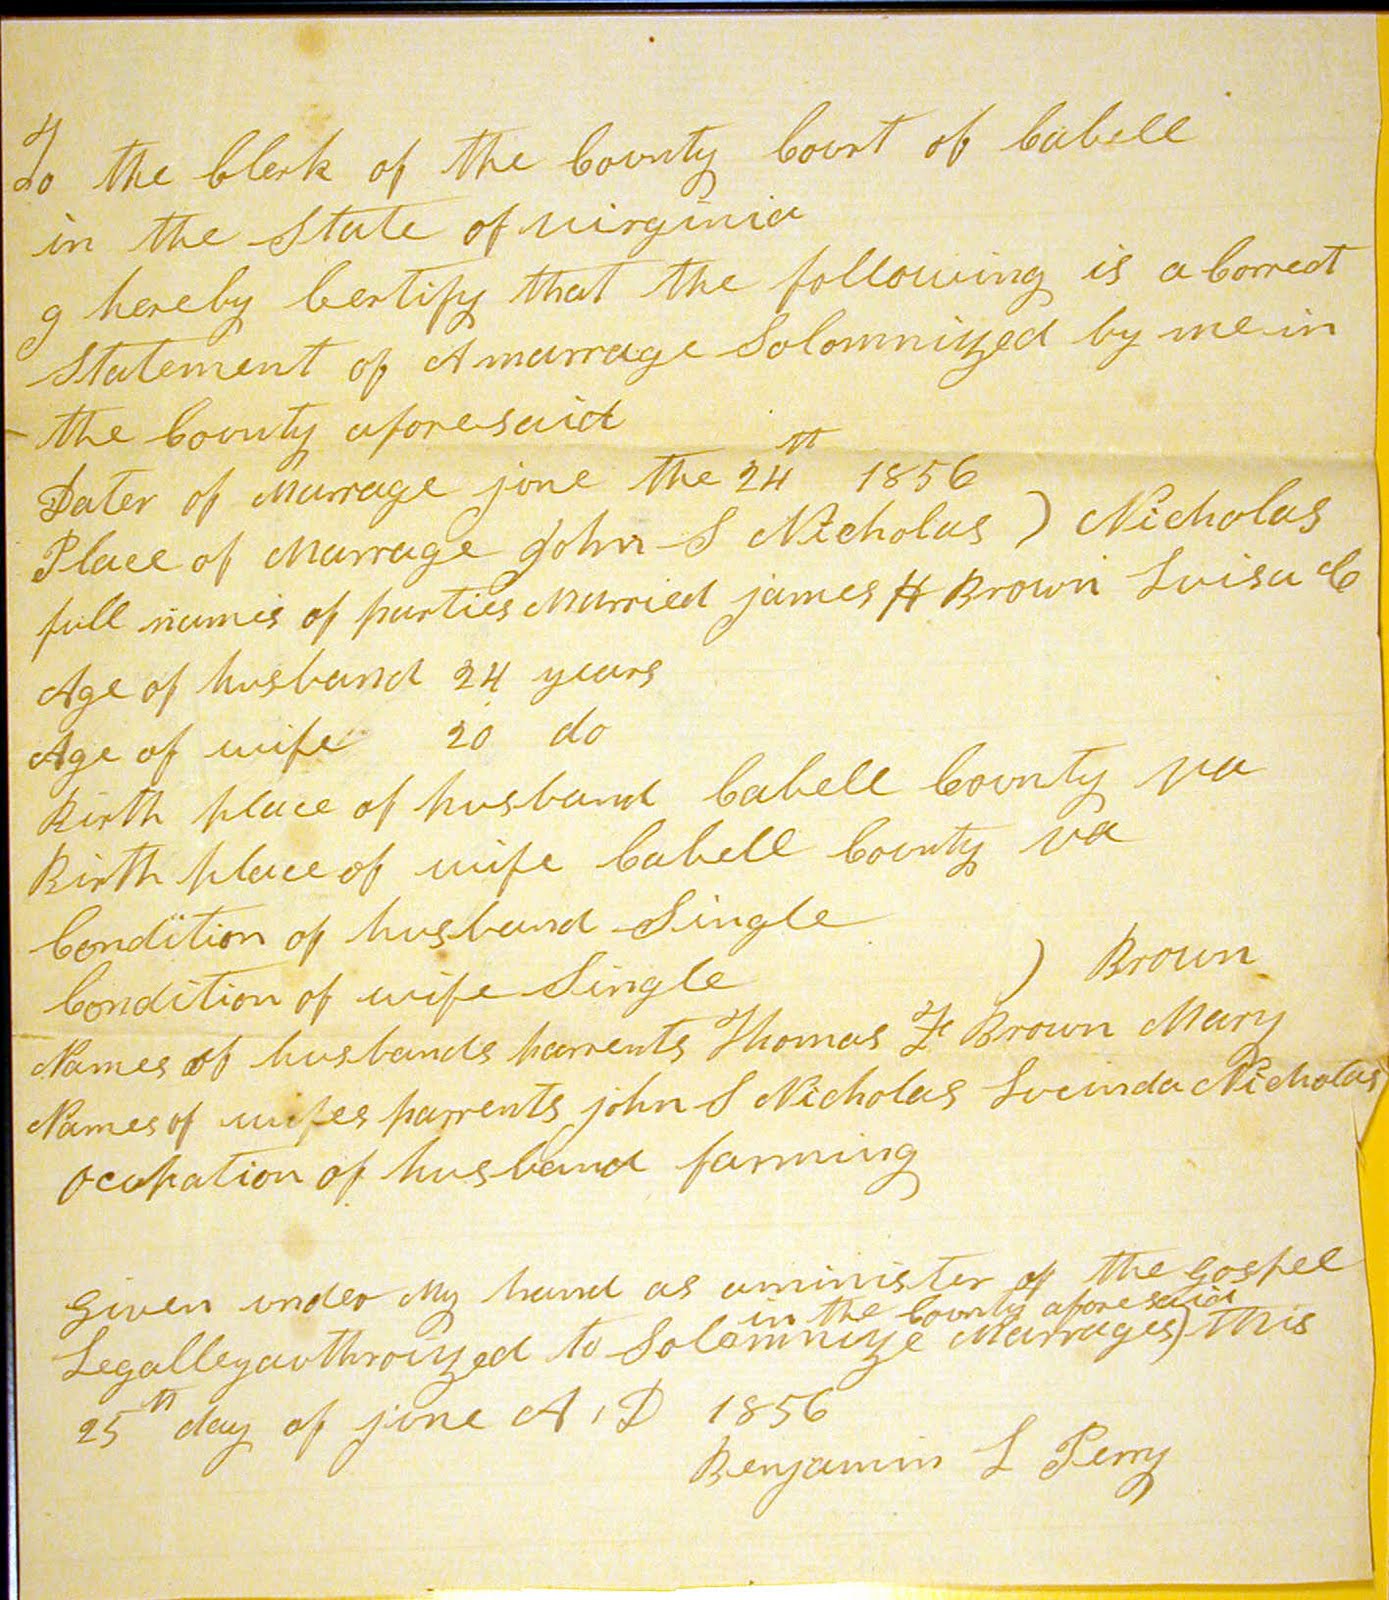 To the Clerk of the County Court of Cabell
in the State of virginia
I hereby Certify that the following is a Correct
Statement of A marrage Solomnized by me in
the County aforesaid
Dater of Marrage june the 24th 1856
Place of Marrage John S Nicholas ) Nicholas
full names of parties Married james H Brown Luisa C
Age of husband 24 years
Age of wife 20 do
Birth place of husband Cabell County va
Birth place of wife Cabell County va
Condition of husband Single
Condition of wife Single ) Brown
Names of husbands parrents Thomas F Brown Mary
Names of wifes parrents john S Nicholas Lucinda Nicholas
Ocupation of husband farming
Given under My hand as aminister of the Gospel
in the County aforesaid
Legalley authroized to Solemnize Marrages) this
25th day of june A, D 1856
Benjamin L Perry